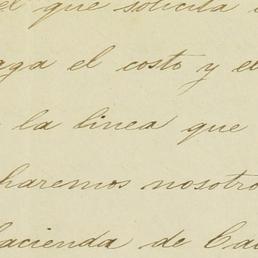 el que solicita
aga el costo y el
la linea que
haremos nosotro
hacienda de Ca